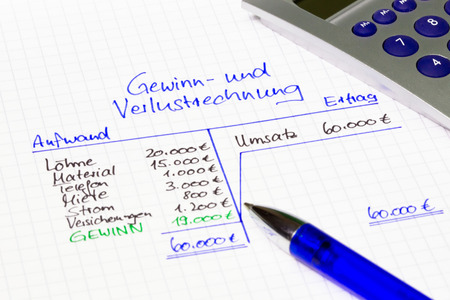 Gewinn- und
Verlustrechnung
Aufwand Ertrag
Löhne 20.000 € Umsatz 60.000 €
Material 15.000 €
Telefon 1.000 €
Miete 3.000 €
Strom 800 €
Versicherungen 1.200 €
GEWINN 19.000 €
60.000 € 60.000 €
7
8
4